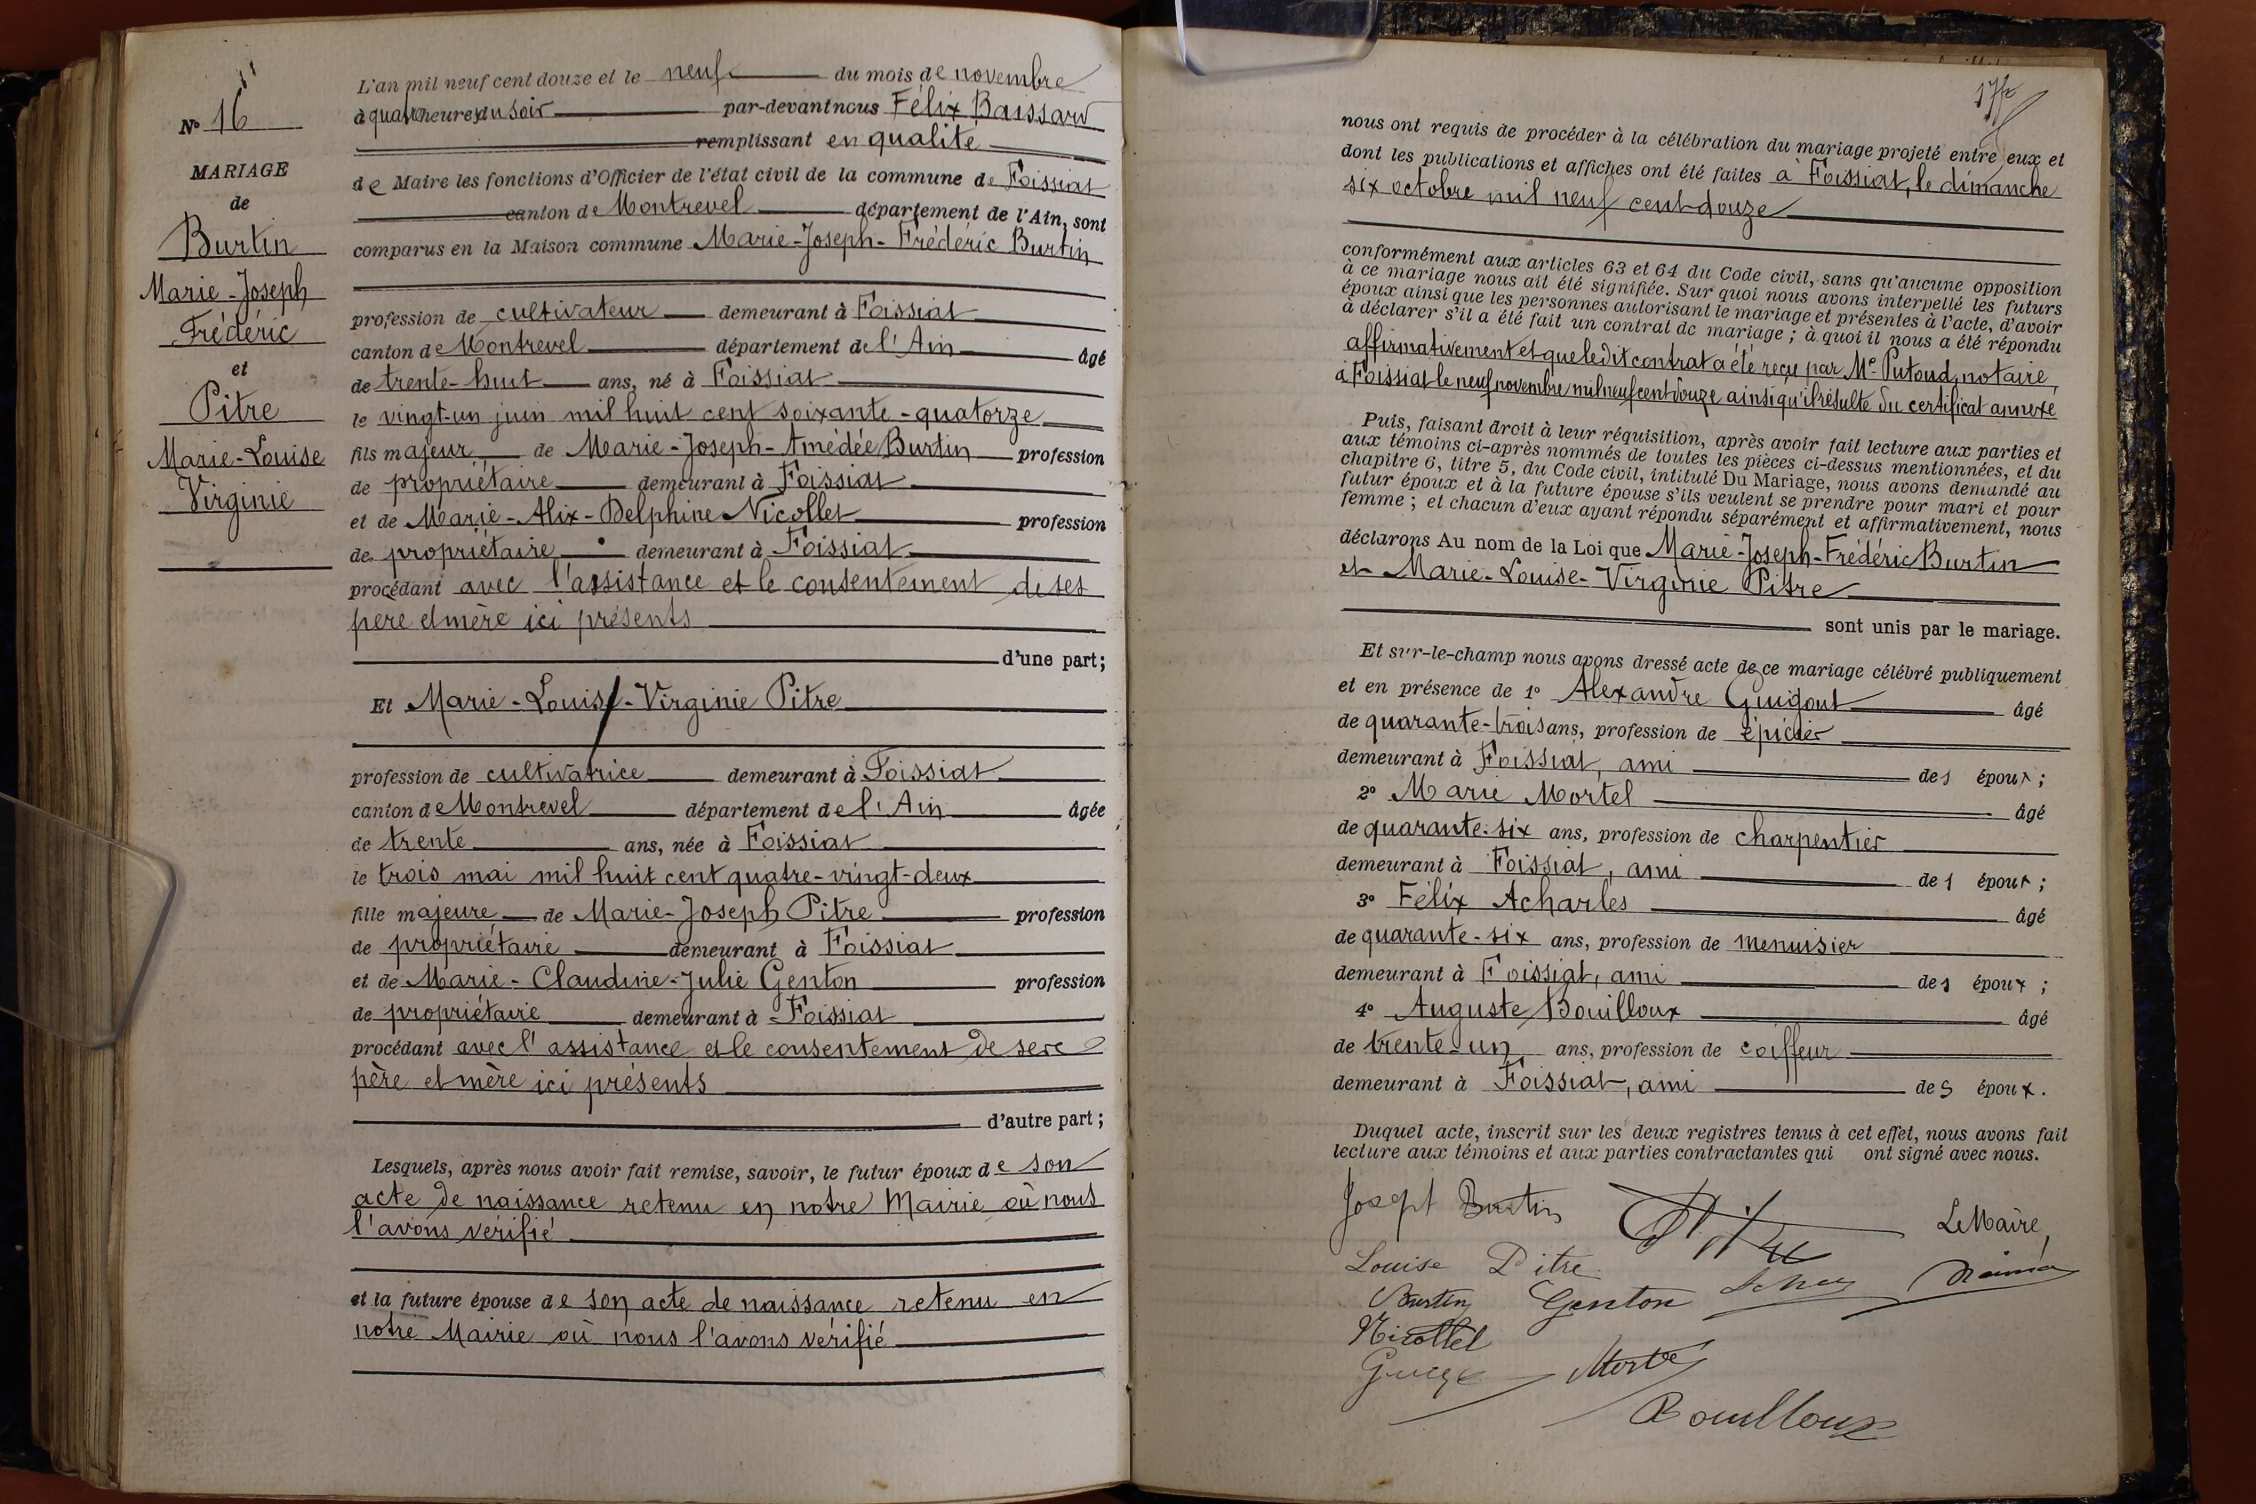 N° 16
MARIAGE
de
Burtin
Marie-Joseph
Frédéric
et
Pitre
Marie-Louise
Virginie
L'an mil neuf cent douze et le neuf du mois de novembre
à quatre heures du soir par-devant nous Félix Baissard
remplissant en qualité
de Maire les fonctions d'Officier de l'état civil de la commune de Foissiat
canton de Montrevel département de l'Ain, sont
comparus en la Maison commune Marie-Joseph-Frédéric Burtin
profession de cultivateur demeurant à Foissiat
canton de Montrevel département de l'Ain âgé
de trente-huit ans, né à Foissiat
le vingt-un juin mil huit cent soixante-quatorze
fils majeur de Marie-Joseph-Amédée Burtin profession
de propriétaire demeurant à Foissiat
et de Marie-Alix-Delphine Nicollet profession
de propriétaire demeurant à Foissiat
procédant avec l'assistance et le consentement de ses
père et mère ici présents
d'une part;
Et Marie-Louise-Virginie Pitre
profession de cultivatrice demeurant à Foissiat
canton de Montrevel département de l'Ain âgée
de trente ans, née à Foissiat
le trois mai mil huit cent quatre-vingt-deux
fille majeure de Marie-Joseph Pitre profession
de propriétaire demeurant à Foissiat
et de Marie-Claudine-Julie Genton profession
de propriétaire demeurant à Foissiat
procédant avec l'assistance et le consentement de ses
père et mère ici présents
d'autre part;
Lesquels, après nous avoir fait remise, savoir, le futur époux de son
acte de naissance retenu en notre Mairie où nous
l'avons vérifié
et la future épouse de son acte de naissance retenu en
notre Mairie où nous l'avons vérifié
nous ont requis de procéder à la célébration du mariage projeté entre eux et
dont les publications et affiches ont été faites à Foissiat, le dimanche
six octobre mil neuf cent douze
conformément aux articles 63 et 64 du Code civil, sans qu'aucune opposition
à ce mariage nous ait été signifiée. Sur quoi nous avons interpellé les futurs
époux ainsi que les personnes autorisant le mariage et présentes à l'acte, d'avoir
à déclarer s'il a été fait un contrat de mariage ; à quoi il nous a été répondu
affirmativement et que ledit contrat a été reçu par Me Putoud, notaire,
à Foissiat le neuf novembre mil neuf cent douze ainsi qu'il résulte du certificat annexé
Puis, faisant droit à leur réquisition, après avoir fait lecture aux parties et
aux témoins ci-après nommés de toutes les pièces ci-dessus mentionnées, et du
chapitre 6, titre 5, du Code civil, intitulé Du Mariage, nous avons demandé au
futur époux et à la future épouse s'ils veulent se prendre pour mari et pour
femme ; et chacun d'eux ayant répondu séparément et affirmativement, nous
déclarons Au nom de la Loi que Marie-Joseph-Frédéric Burtin
et Marie-Louise-Virginie Pitre
sont unis par le mariage.
Et sur-le-champ nous avons dressé acte de ce mariage célébré publiquement
et en présence de 1° Alexandre Guigout âgé
de quarante-trois ans, profession de épicier
demeurant à Foissiat, ami des époux ;
2° Marie Mortel âgé
de quarante-six ans, profession de charpentier
demeurant à Foissiat, ami des époux ;
3° Félix Acharles âgé
de quarante-six ans, profession de menuisier
demeurant à Foissiat, ami des époux ;
4° Auguste Bouilloux âgé
de trente-un ans, profession de coiffeur
demeurant à Foissiat, ami des époux.
Duquel acte, inscrit sur les deux registres tenus à cet effet, nous avons fait
lecture aux témoins et aux parties contractantes qui ont signé avec nous.
Joseph Burtin
Pitre
Le Maire,
Louise Pitre
Burtin
Genton
Nicollet
Bouilloux